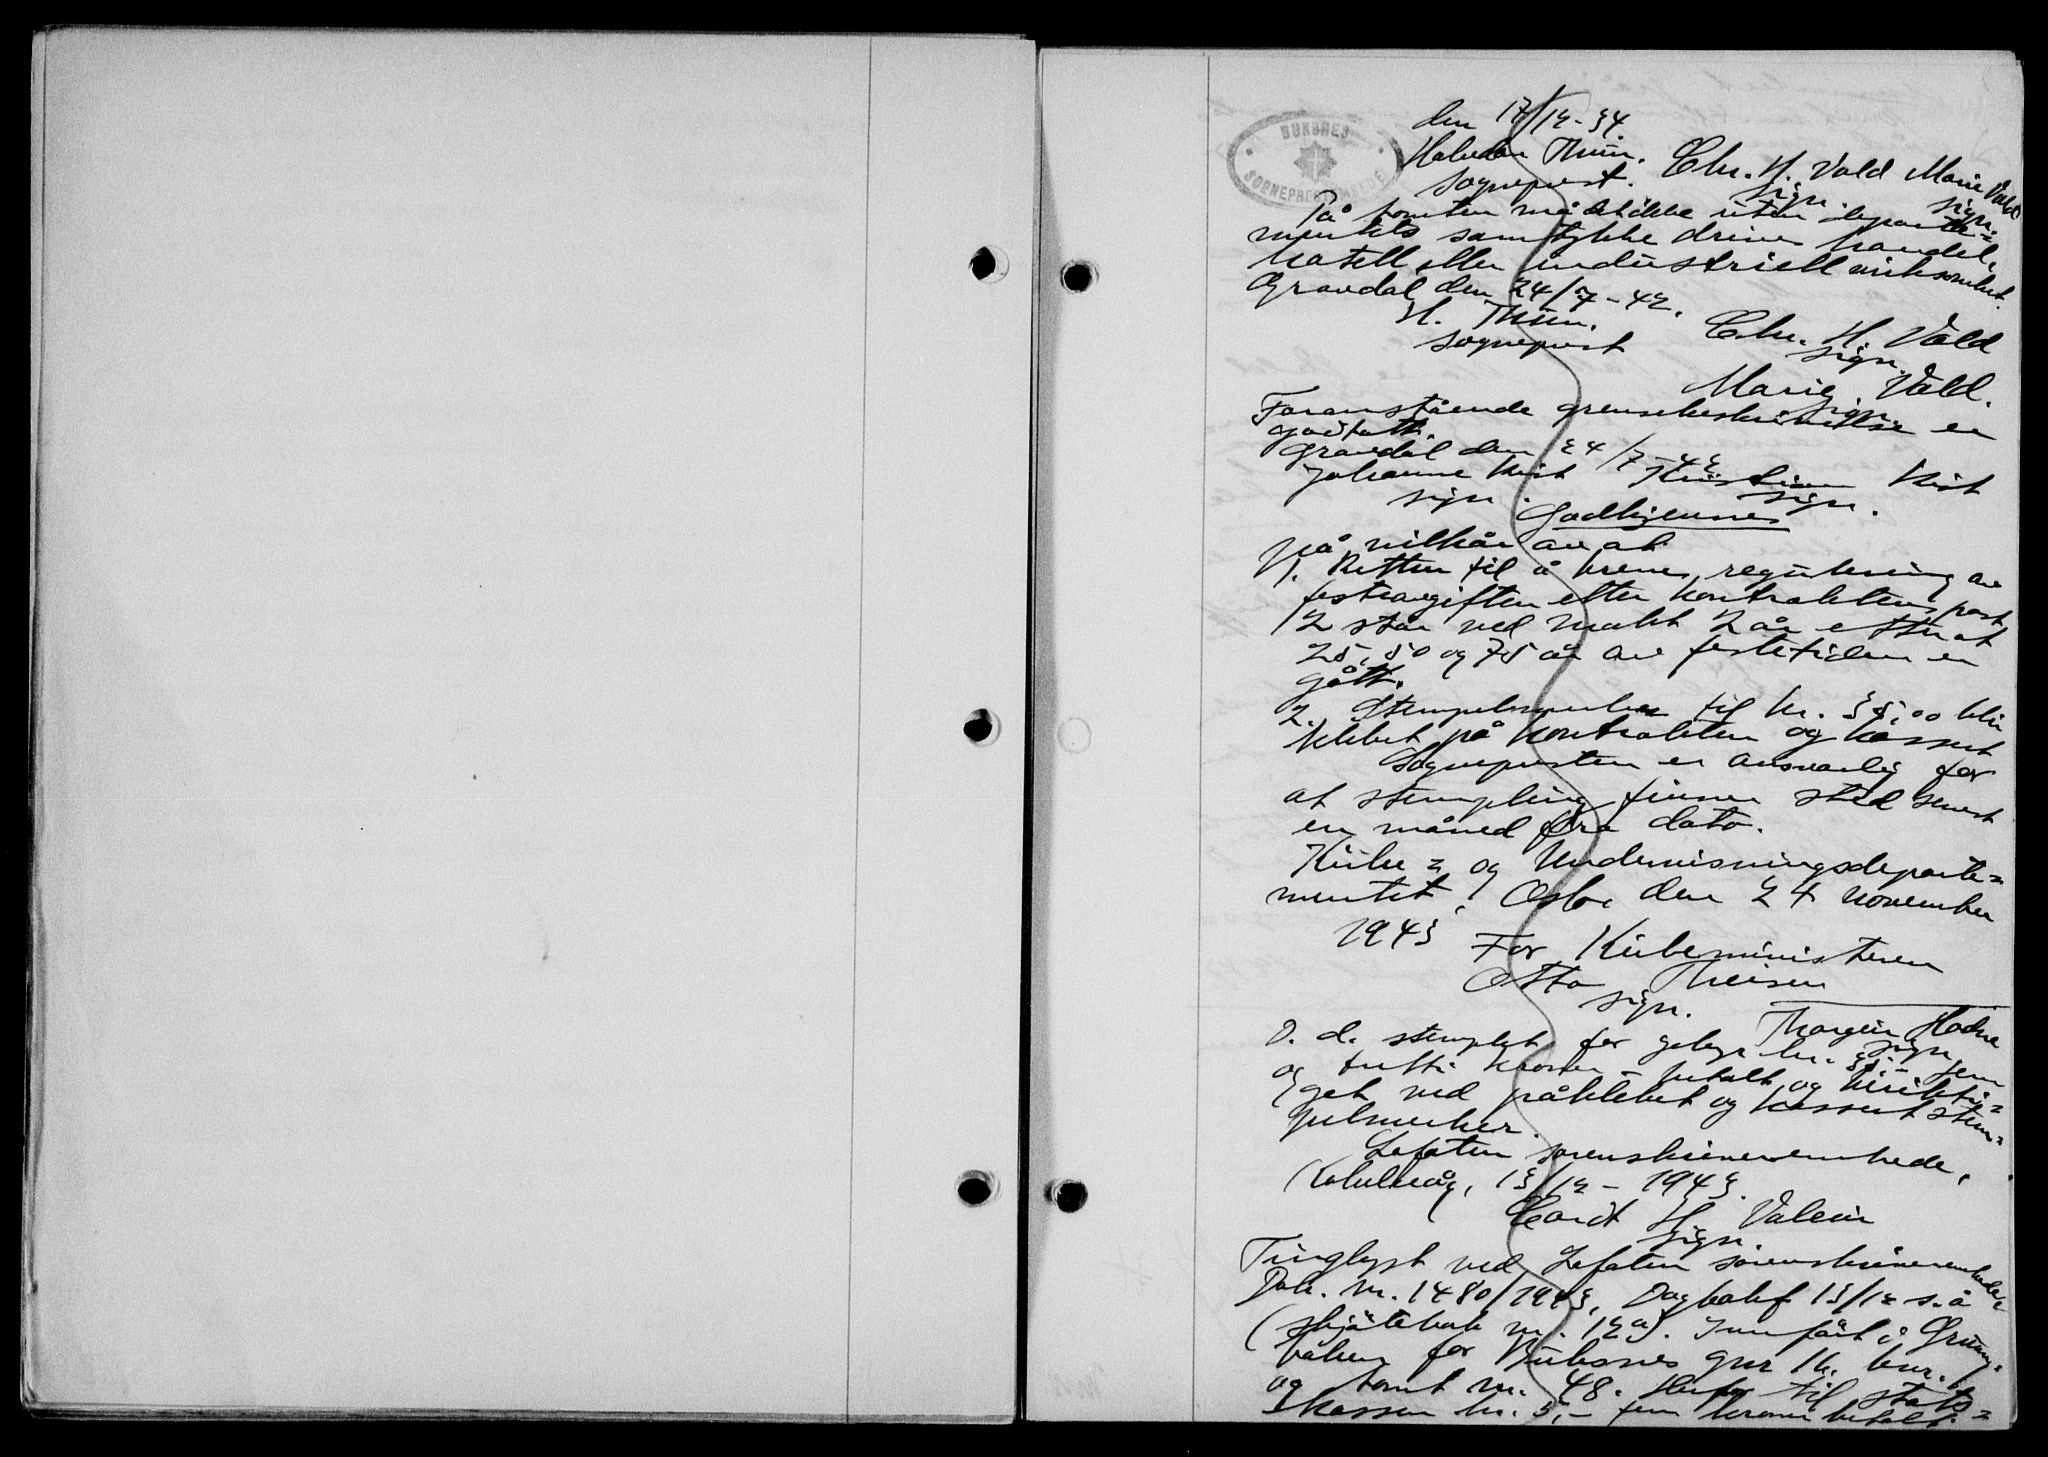 BUKSNES
SOGNEPRESTEMBEDE
den 17/12-34.
Halvdan Thiin. Chr. H. Vold Marie Vold
Sogneprest. sign. sign.
På tomten må det ikke uten departe=
mentets samtykke drives handel,
hotell eller industriell virksomhet.
Gravdal den 24/7-42.
H. Thiin. Chr. H. Vold
sogneprest sign.
Marie Vold.
sign.
Foranstående grensebeskrivelse er
godtatt.
Gravdal den 24/7-42
Johanne Kist Kristian Kist
sign. sign.
Godkjennes
på vilkår av at
1. Retten til å kreve regulering av
festeavgiften etter kontraktens post
2 står ved makt 2 år etter at
25, 50 og 75 år av festetiden er
gått.
2. Stempelmerker til kr. 35,00 blir
klebet på kontrakten og kassert
Sognepresten er ansvarlig for
at stempling finner sted senest
en måned fra dato.
Kirke= og Undervisningsdeparte=
mentet, Oslo den 24 november
1943
For Kirkeministeren
Otto Theisen
sign.
Thorgeir Hadne
sign
D. d. stemplet for gebyr kr. 35,- fem
og tretti kroner - betalt og kvitte=
get ved påklebet og kassert stem=
pelmerker.
Lofoten sorenskriverembede,
Kabelvåg, 13/12-1943.
Cordt H. Valeur
sign.
Tinglyst ved Lofoten sorenskriverembede,
Dok. nr. 1480/1943, Dagbokf. 13/12 s.å
(skjøtebok nr. 12a). Innført i Grunn=
boken for Buksnes gnr 16. bnr. 1
og tomt nr. 48. Herfor til stats=
kassen kr. 5,- fem kroner betalt.